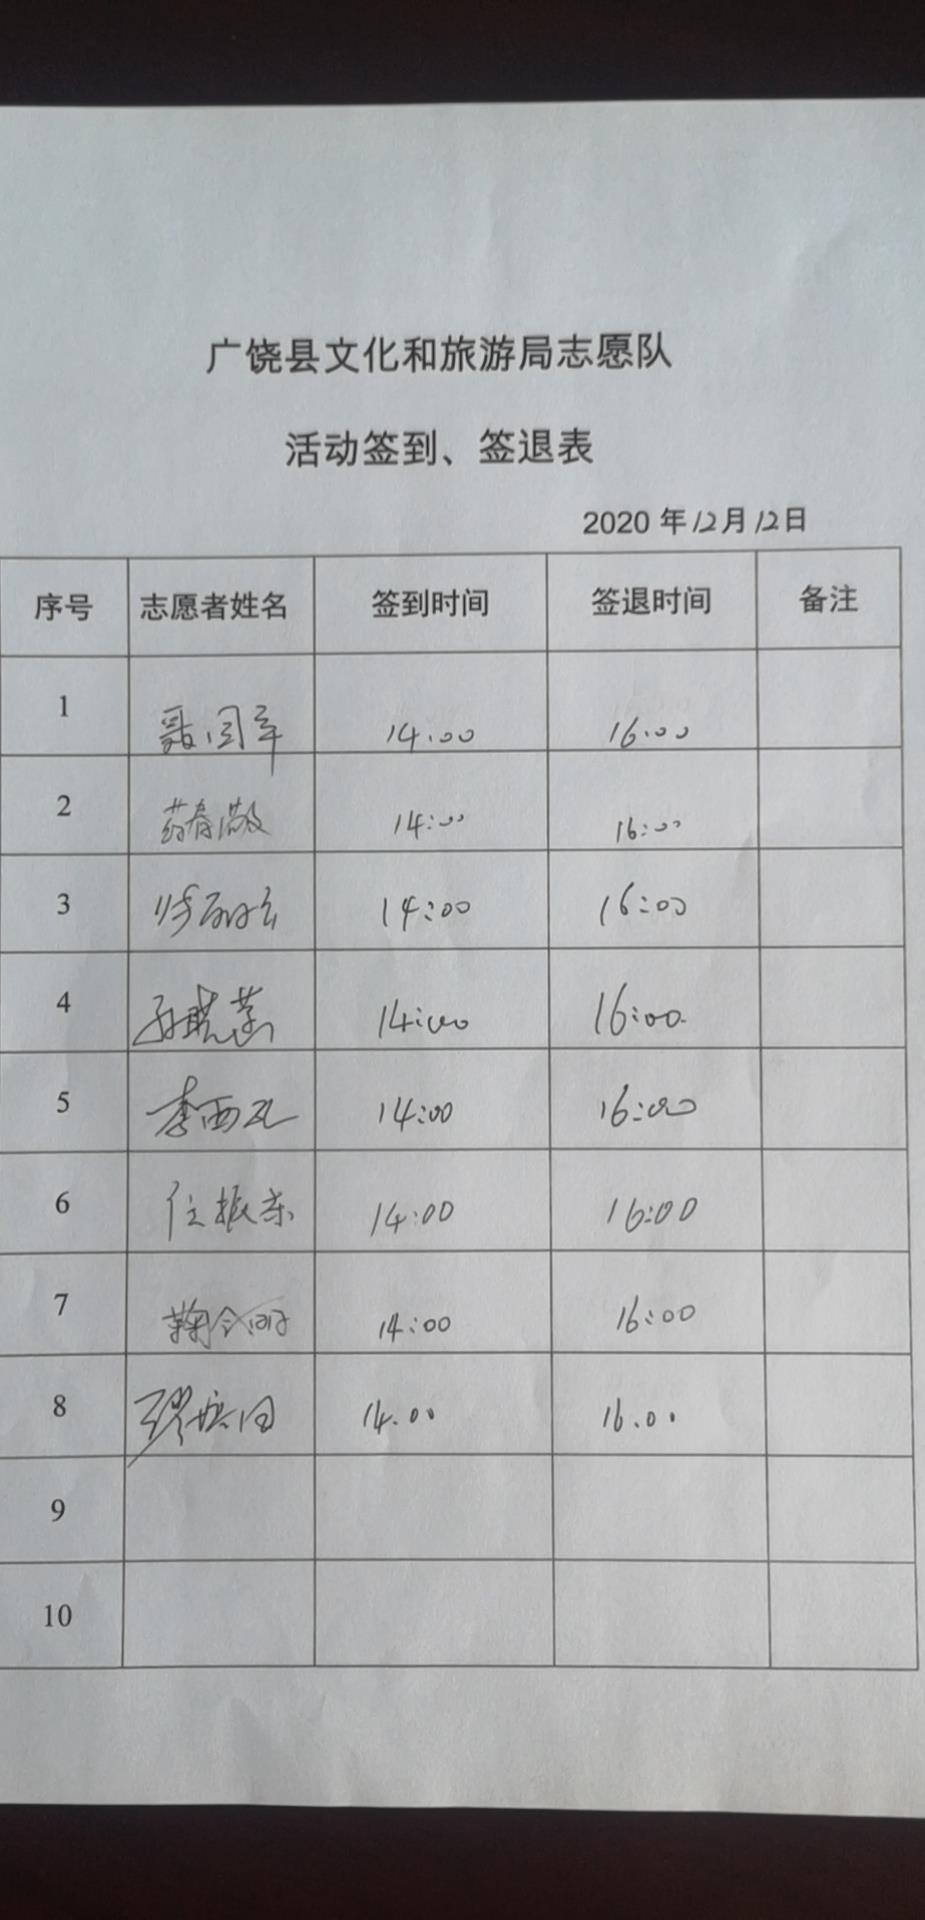 广饶县文化和旅游局志愿队
活动签到、签退表
2020 年12月12日
序号 志愿者姓名 签到时间 签退时间 备注
1 14:00 16:00
2 14:00 16:00
3 14:00 16:00
4 孙晓燕 14:00 16:00
5 李西孔 14:00 16:00
6 任振东 14:00 16:00
7 14:00 16:00
8 14.00 16.00
9
10